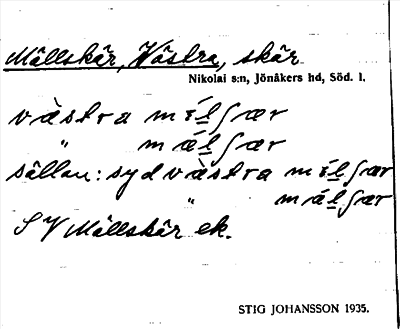 Mällskär, Västra, skär
Nikolai s:n, Jönåkers hd, Söd. l.
västra mɛ́l̲ʃær
" mǽl̲ʃær
sällan: sydvästra mɛ́l̲ʃær
" mǽl̲ʃær
SV Mällskär ek.
STIG JOHANSSON 1935.